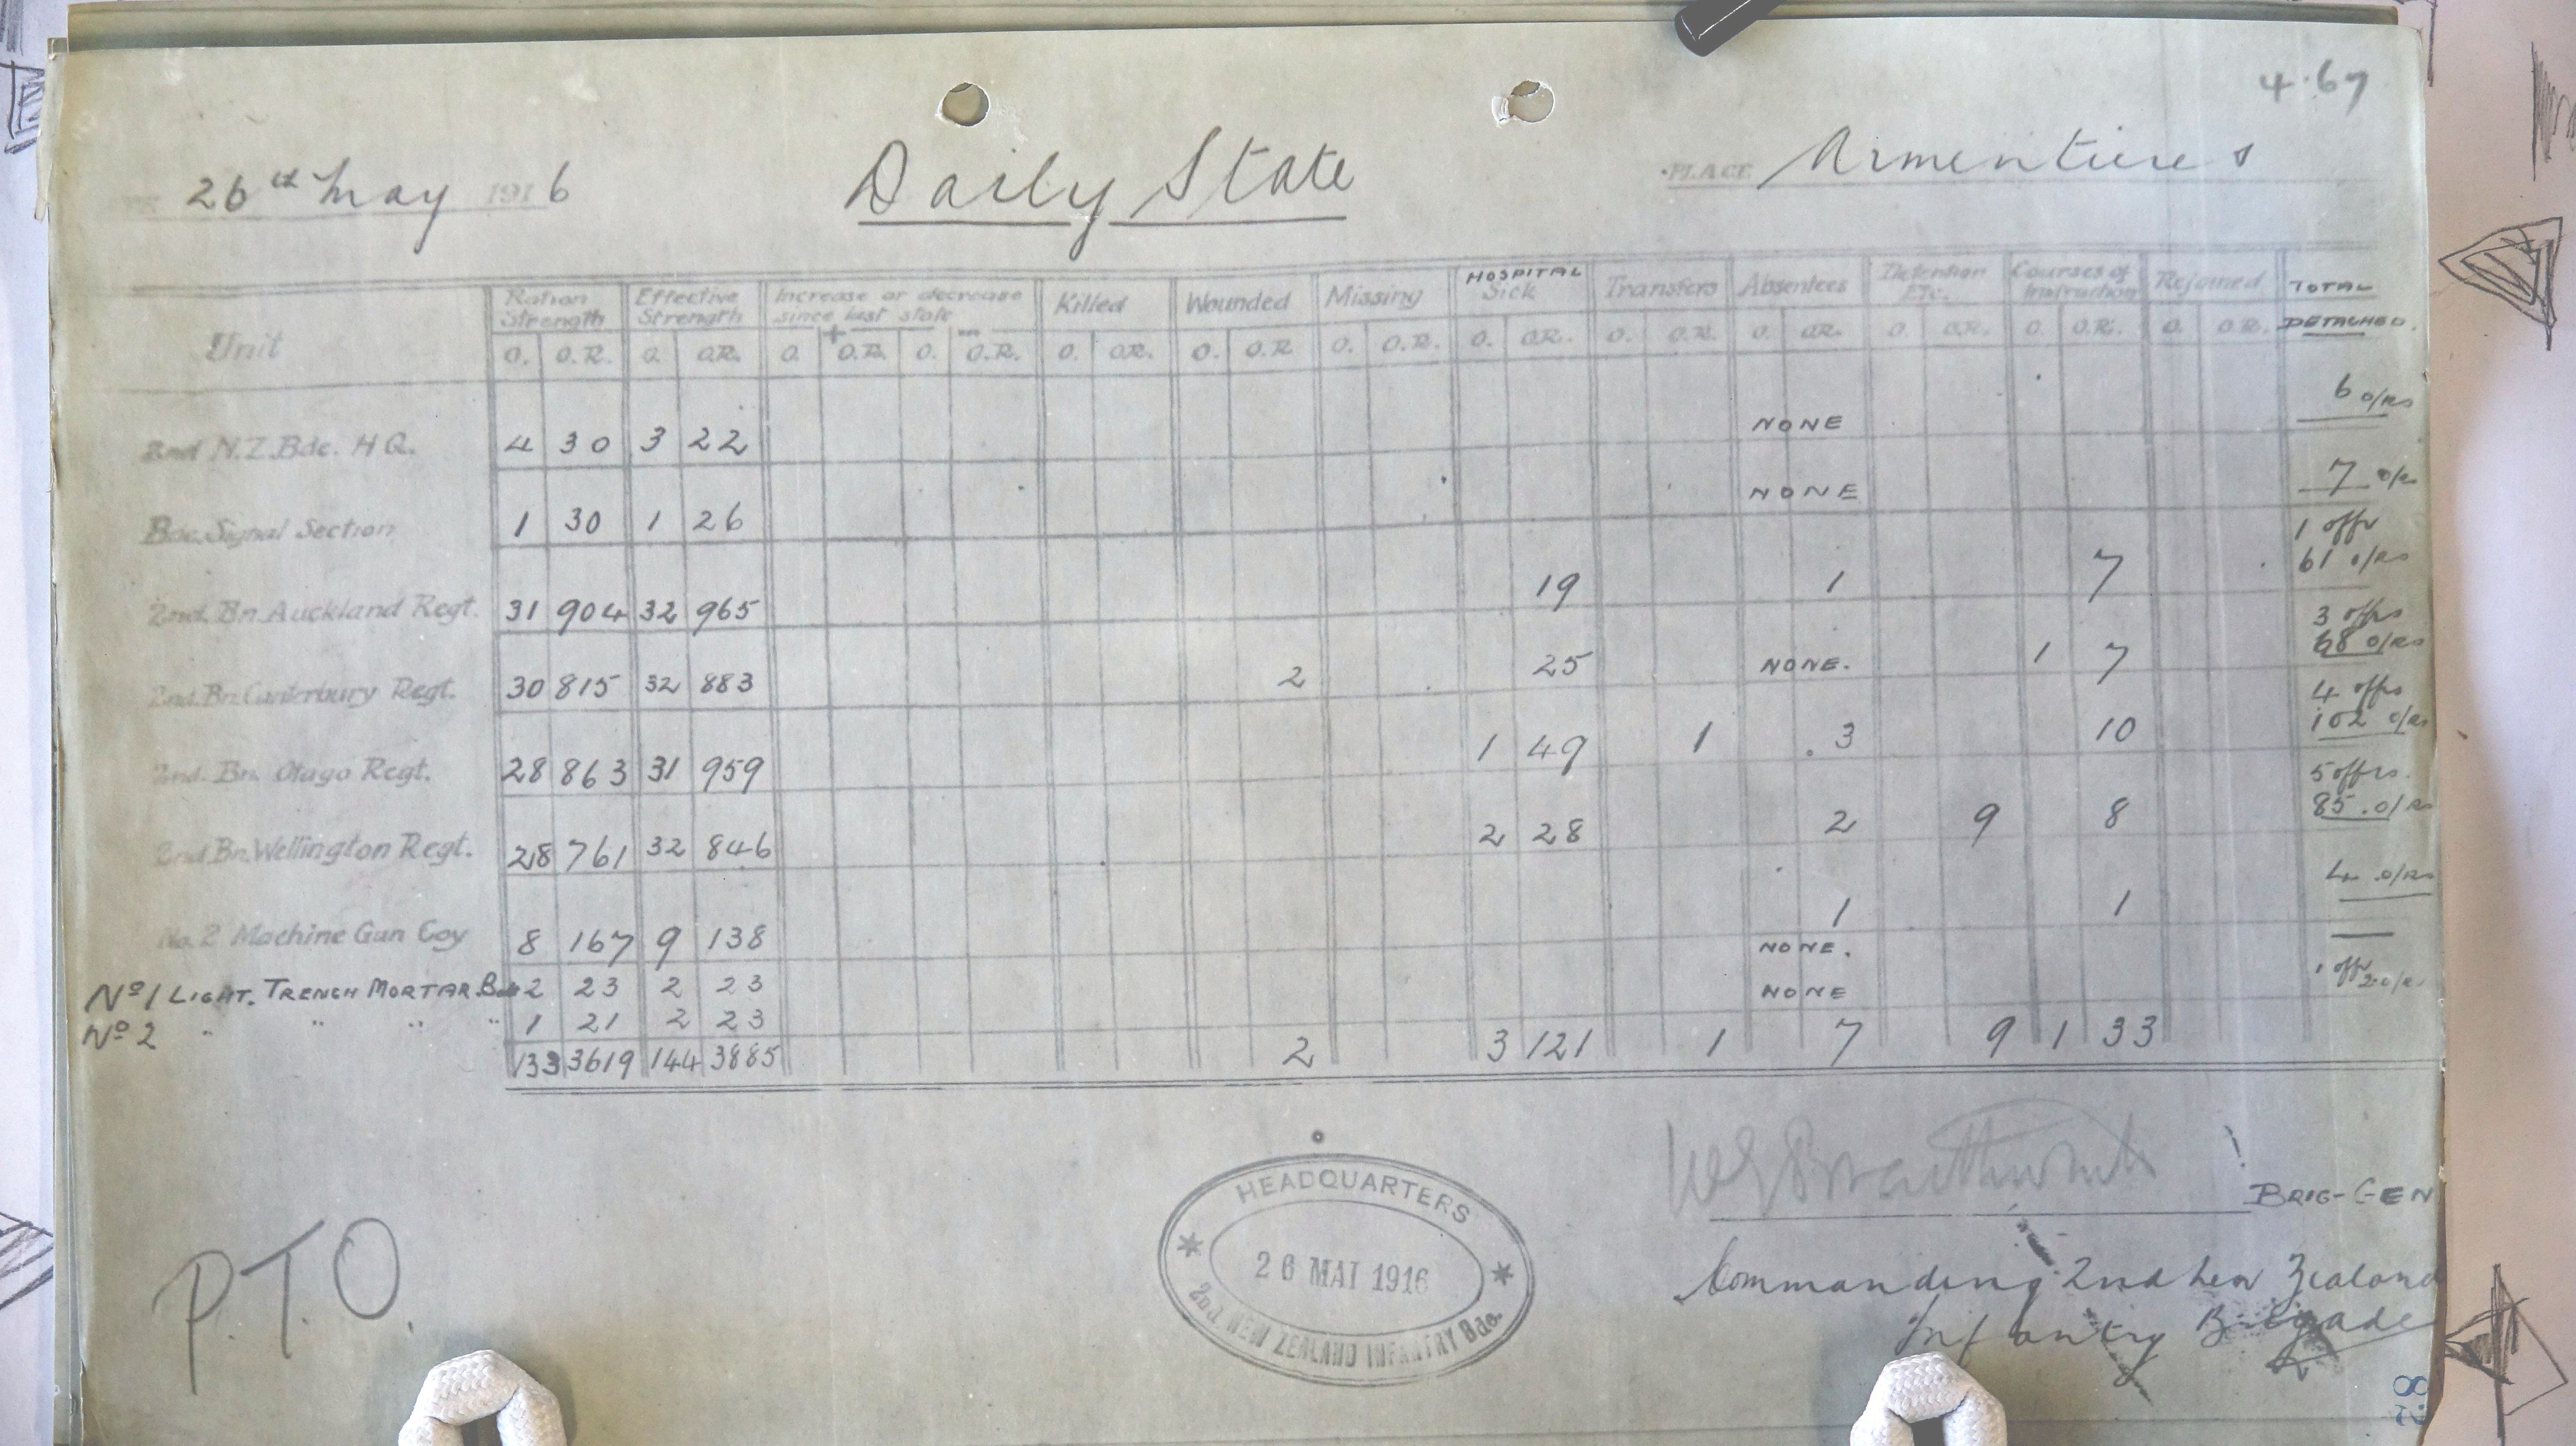 4.67
26th May 1916 Daily State PLACE Armentieres
Unit Ration Strength Effective Strength Increase or decrease since last state + - Killed Wounded Missing HOSPITAL Sick Transfers Absentees Detention Etc. Courses of Instruction Rejoined TOTAL DETACHED.
O. O.R. O. O.R. O. O.R. O. O.R. O. O.R. O. O.R. O. O.R. O. O.R. O. O.R. O. O.R. O. O.R. O. O.R. O. O.R.
2nd N.Z. Bde. H Q. 4 30 3 22 NONE 6 o/rs
Bde. Signal Section 1 30 1 26 NONE 7 o/rs
2nd. Bn. Auckland Regt. 31 904 32 965 19 1 7 1 offr 61 o/rs
2nd. Bn. Canterbury Regt. 30 815 32 883 2 25 NONE. 1 7 3 offrs 68 o/rs
2nd. Bn. Otago Regt. 28 863 31 959 1 49 1 3 10 4 offrs 102 o/rs
2nd Bn. Wellington Regt. 28 761 32 846 2 28 2 9 8 5 offrs. 85. o/rs
No. 2 Machine Gun Coy 8 167 9 138 1 1 4 o/rs
No 1 LIGHT. TRENCH MORTAR. 2 23 2 23 NONE. —
No 2 " " " " 1 21 2 23 NONE 1 offr 2 o/rs
133 3619 144 3885 2 3 121 1 7 9 1 33
BRIG-GEN
Commanding 2nd New Zealand
Infantry Brigade
HEADQUARTERS
26 MAI 1916
2nd. NEW ZEALAND INFANTRY Bde.
P.T.O.
82